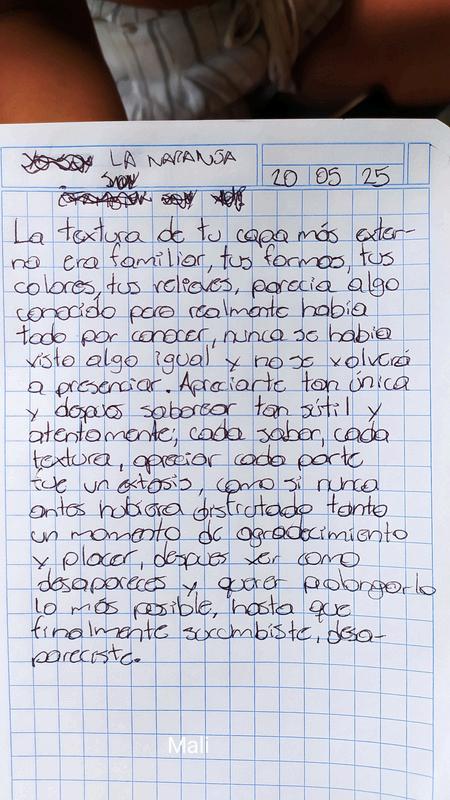 LA NARANJA
20 05 25
La textura de tu capa más exter-
na era familiar, tus formas, tus
colores, tus relieves, parecia algo
conocido pero realmente había
todo por conocer, nunca se habia
visto algo igual y no se volverá
a presenciar. Apreciarte tan única
y despues saborear tan sútil y
atentamente; cada sabor, cada
textura, apreciar cada parte
fue un extasis, como si nunca
antes hubiera disfrutado tanto
un momento de agradecimiento
y placer, despues ver como
desapareces y querer prolongarlo
lo más posible, hasta que
finalmente sucumbiste, desa-
pareciste.
Mali